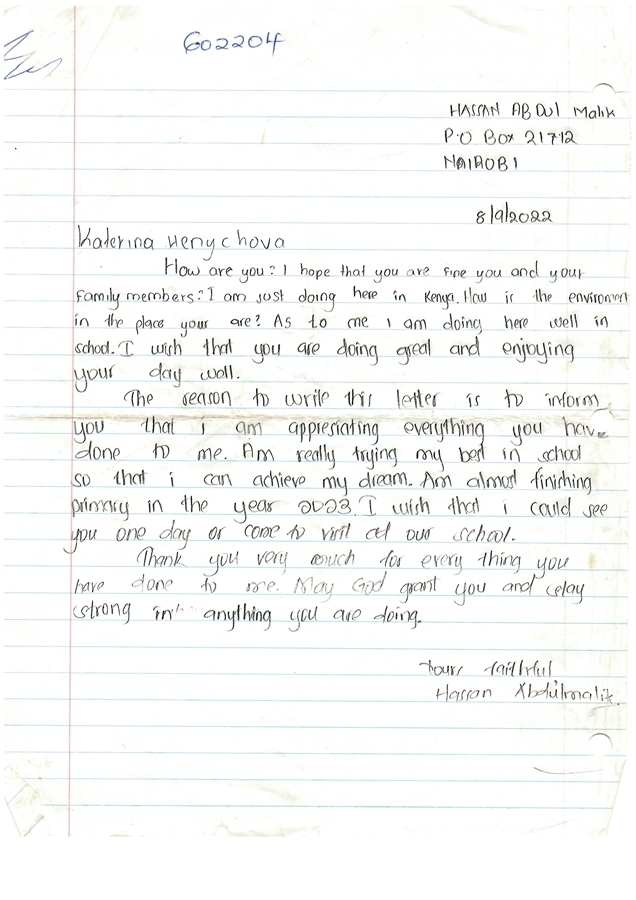 602204
HASSAN ABDUl Malik
P.O Box 21712
NAIROBI
8/9/2022
Katerina Henychova
How are you? I hope that you are fine you and your
family members? I am just doing here in Kenya. How is the environment
in the place your are? As to me i am doing here well in
school. I wish that you are doing great and enjoying
your day well.
The reason to write this letter is to inform
you that i am appresiating everything you have
done to me. Am really trying my best in school
so that i can achieve my dream. Am almost finishing
primary in the year 2023. I wish that i could see
you one day or come to visit at our school.
Thank you very much for every thing you
have done to me. May God grant you and stay
strong in anything you are doing.
Yours faithful
Hassan Abdulmalik.